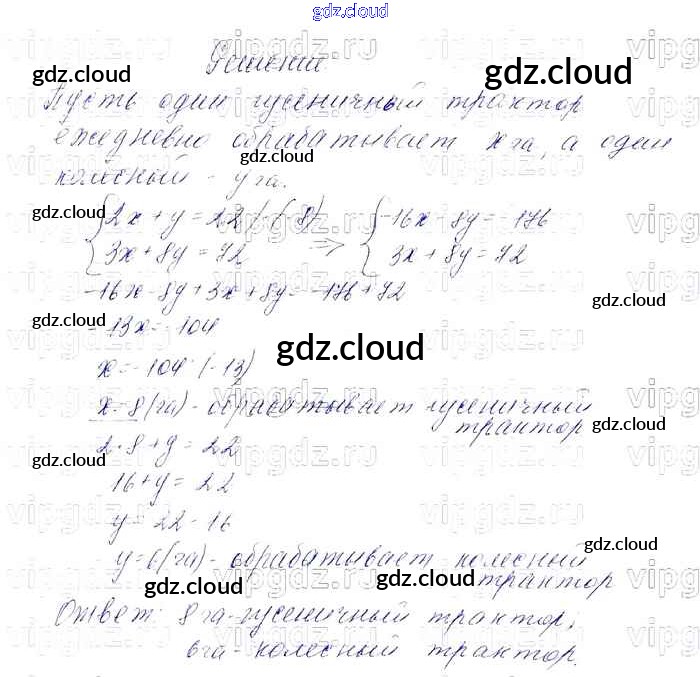 gdz.cloud
Решение
gdz.cloud gdz.cloud
Пусть один гусеничный трактор
ежедневно обрабатывает x га, а один
gdz.cloud
колёсный - y га.
gdz.cloud
{2x + y = 22 | · (-8) {-16x - 8y = -176
{3x + 8y = 72 => {3x + 8y = 72
-16x - 8y + 3x + 8y = -176 + 72
gdz.cloud
gdz.cloud
-13x = -104
gdz.cloud
x = -104 : (-13)
x = 8 (га) - обрабатывает гусеничный
трактор
gdz.cloud
2 · 8 + y = 22
gdz.cloud
16 + y = 22
y = 22 - 16
gdz.cloud
y = 6 (га) - обрабатывает колесный
трактор
gdz.cloud gdz.cloud
Ответ: 8 га - гусеничный трактор,
6 га - колесный трактор.
gdz.cloud